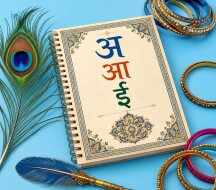 अ
आ
ई